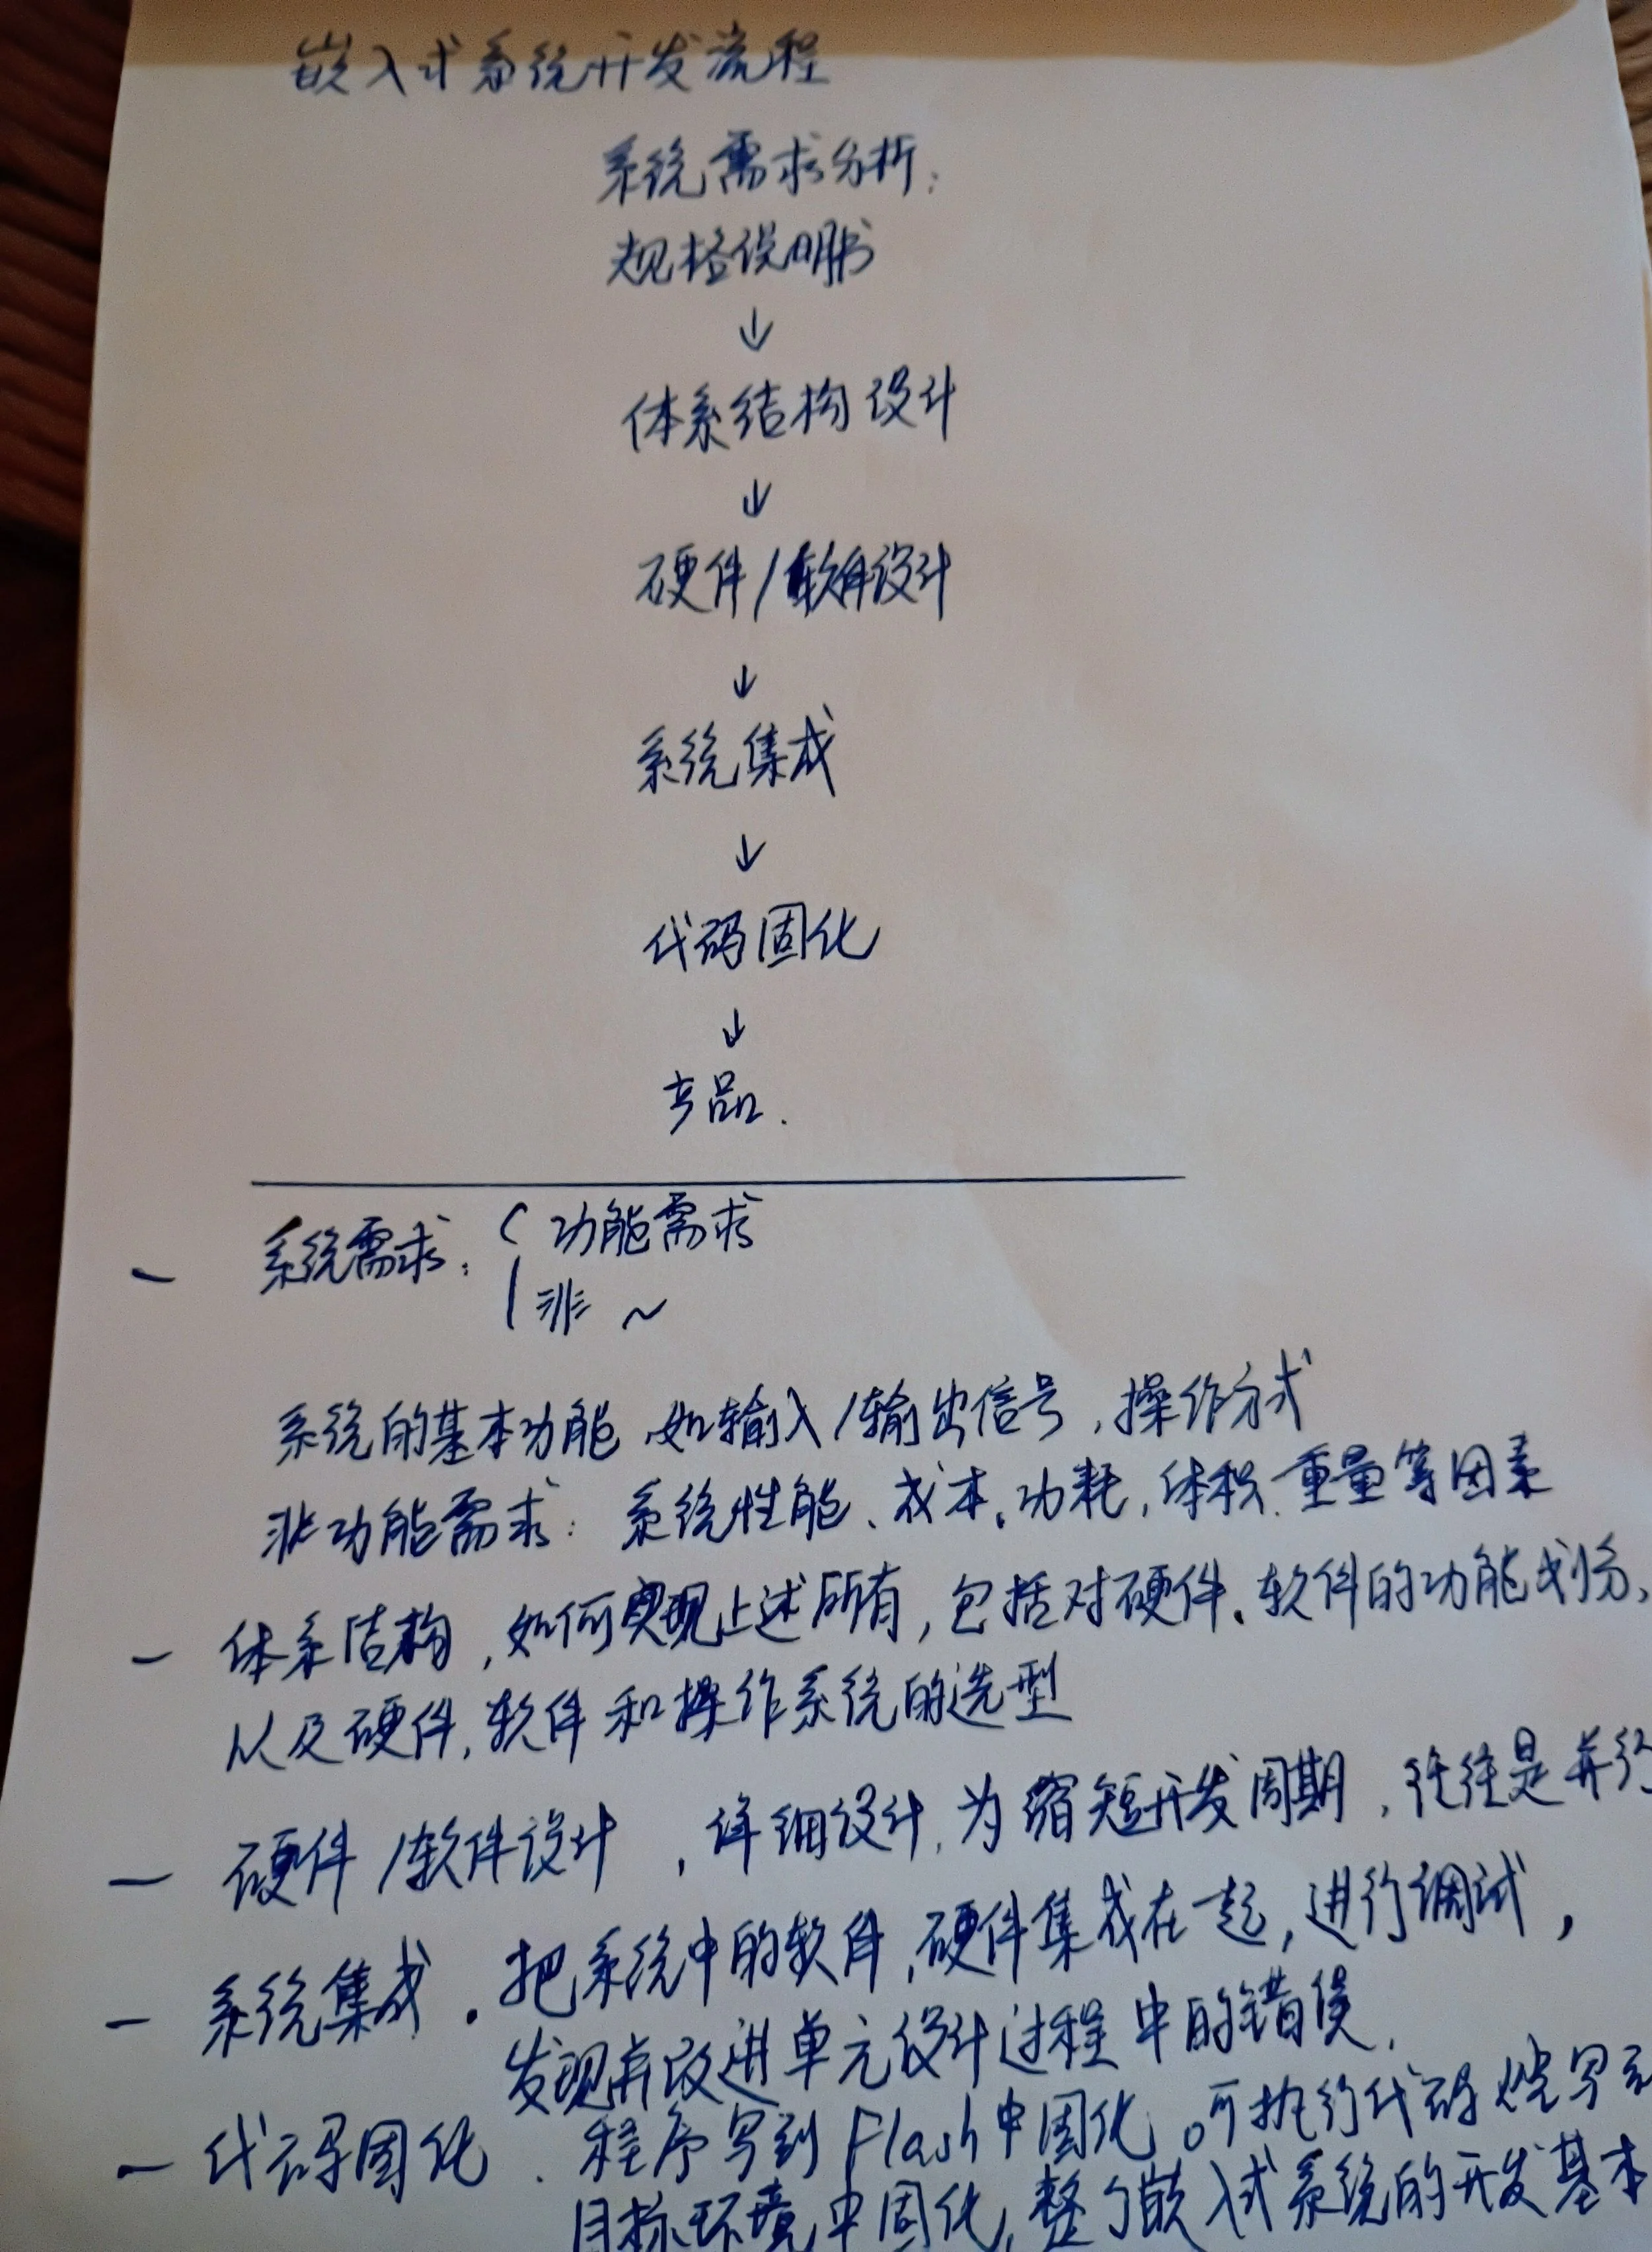 嵌入式系统开发流程
系统需求分析:
规格说明书
↓
体系结构设计
↓
硬件/软件设计
↓
系统集成
↓
代码固化
↓
产品.
— 系统需求: { 功能需求
非 ~
系统的基本功能,如输入/输出信号,操作方式
非功能需求: 系统性能、成本、功耗,体积、重量等因素
— 体系结构,如何实现上述所有,包括对硬件、软件的功能划分、
以及硬件,软件和操作系统的选型
— 硬件/软件设计,详细设计,为缩短开发周期,往往是并行
— 系统集成.把系统中的软件,硬件集成在一起,进行调试,
发现并改进单元设计过程中的错误.
— 代码固化.程序写到Flash中固化。可执行代码烧写到
目标环境中固化,整个嵌入式系统的开发基本